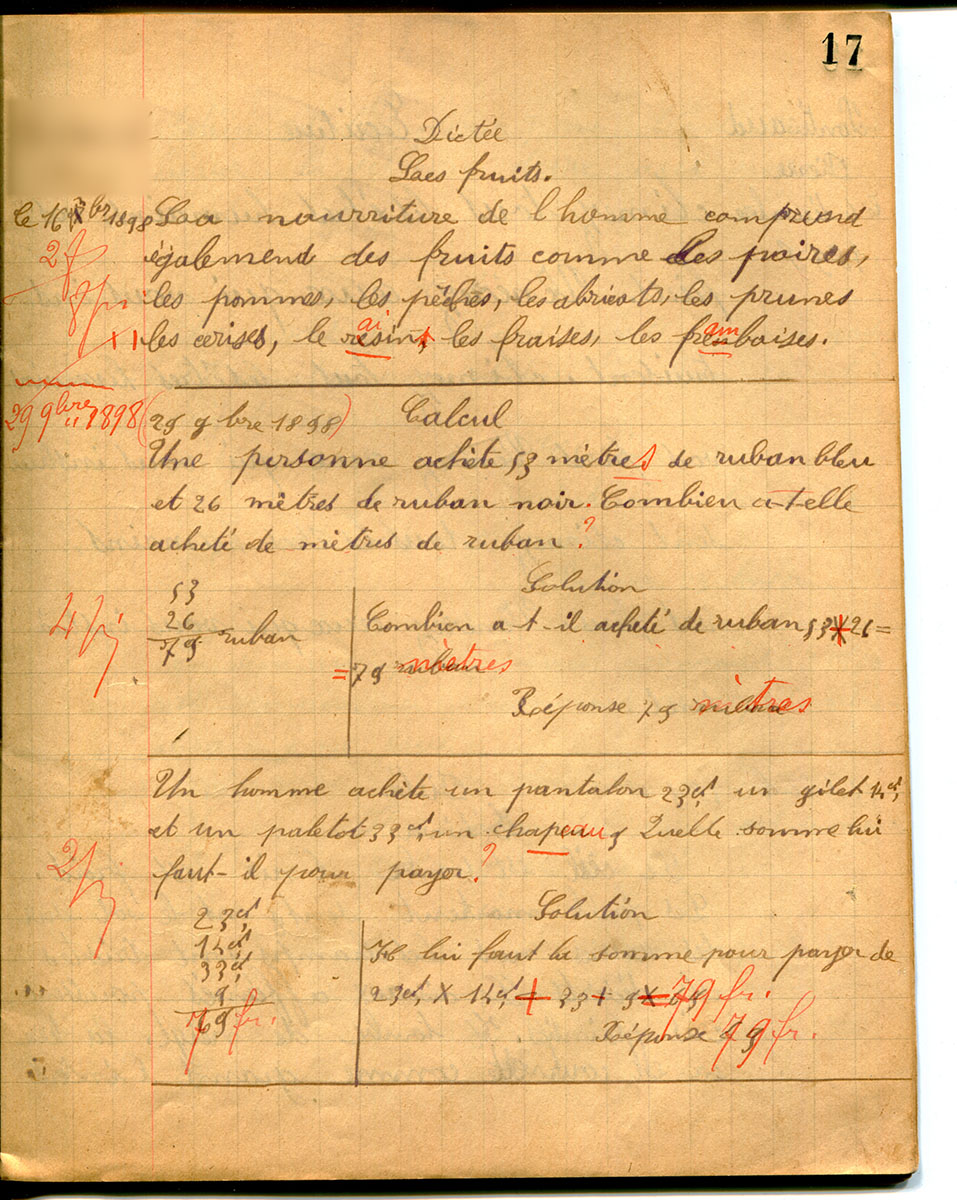 17
Dictée
Les fruits.
le 16 9bre 1898
La nourriture de l'homme comprend
également des fruits comme les poires,
les pommes, les pêches, les abricots, les prunes
les cerises, le résin, les fraises, les frenboises.
ai
am
29 9bre 1898
(29 9bre 1898)
Calcul
Une personne achète 53 mètres de ruban bleu
et 26 mètres de ruban noir. Combien a-t-elle
acheté de mètres de ruban ?
Solution
53
26
79 ruban
Combien a-t-il acheté de ruban 53 + 26 =
= 79 mètres
Réponse 79 mètres
Un homme achète un pantalon 23 un gilet 14
et un paletot 33, un chapeau 9 Quelle somme lui
faut-il pour payer ?
Solution
23
14
33
9
79 fr.
Il lui faut la somme pour payer de
23 × 14 + 33 + 9 = 79 fr.
Réponse 79 fr.